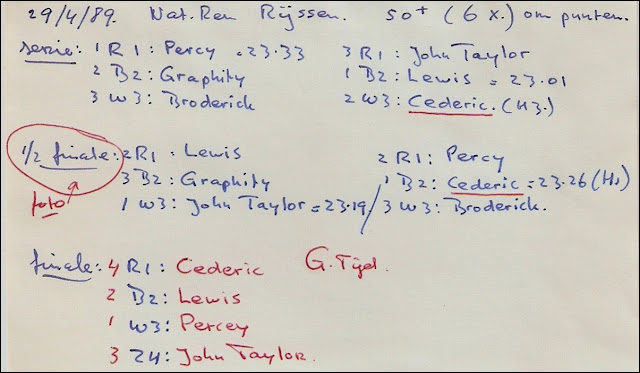 29/4/89. Nat. Ren Rijssen. 50+ (6 x.) om punten.
serie: 1 R1: Percy = 23.33 3 R1: John Taylor
2 B2: Graphity 1 B2: Lewis = 23.01
3 W3: Broderick 2 W3: Cederic. (H3.)
1/2 finale: 2 R1: Lewis 2 R1: Percy
3 B2: Graphity 1 B2: Cederic = 23.26 (H1)
foto 1 W3: John Taylor = 23.19 / 3 W3: Broderick.
finale: 4 R1: Cederic G. Tijd.
2 B2: Lewis
1 W3: Percey
3 Z4: John Taylor.